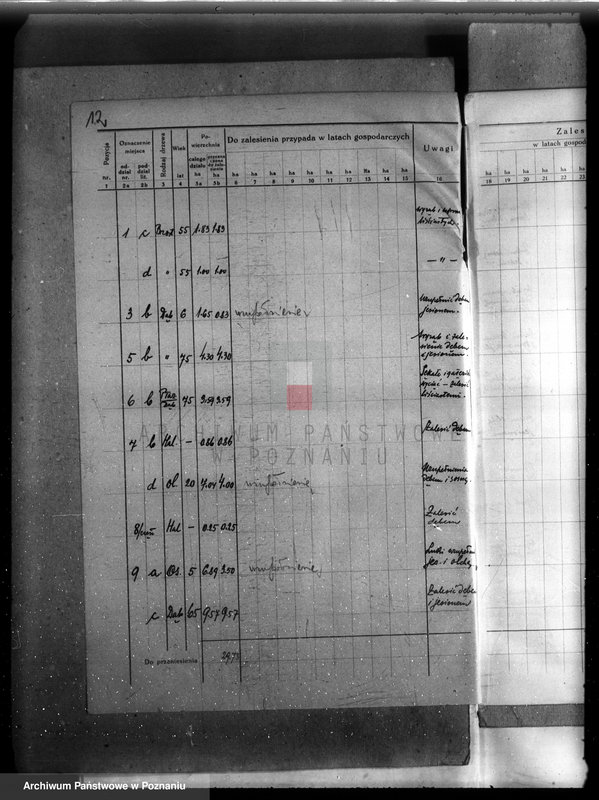 12
Pozycja
nr.
Oznaczenie miejsca
od-dział nr.
pod-dział lit.
Rodzaj drzewa
Wiek
lat
Po-wierzchnia
całego działu ha
ha
Do zalesienia przypada w latach gospodarczych
ha ha ha ha ha ha ha ha ha ha
Uwagi
1 2a 2b 3 4 5a 5b 6 7 8 9 10 11 12 13 14 15 16
Zales
w latach gospod
ha ha ha ha ha ha
18 19 20 21 22 23
1 c 55 1.83 1.83
d " 55 1.00 1.00 — " —
3 b Dąb 6 1.65 0.83 uzupełnienie
Uzupełnić dębem
jesionem.
5 b " 75 4.30 4.30
Wyrąb i zale-
sienie dębem
i jesionem.
6 b Dąb 75 3.59 3.59
7 b Hal. — 0.86 0.86 Zalesić dębem
d Ol 20 7.04 4.00 uzupełnienie
Uzupełnienie
dębem i sosną.
8 Hal — 0.25 0.25
Zalesić
dębem
9 a Os. 5 6.89 3.50 uzupełnienie
Luki uzupełn
jes. i olchą
c Dąb 65 9.57 9.57
Zalesić dębem
i jesionem
Do przeniesienia 29,73
ARCHIWUM PAŃSTWOWE
W POZNANIU
Archiwum Państwowe w Poznaniu